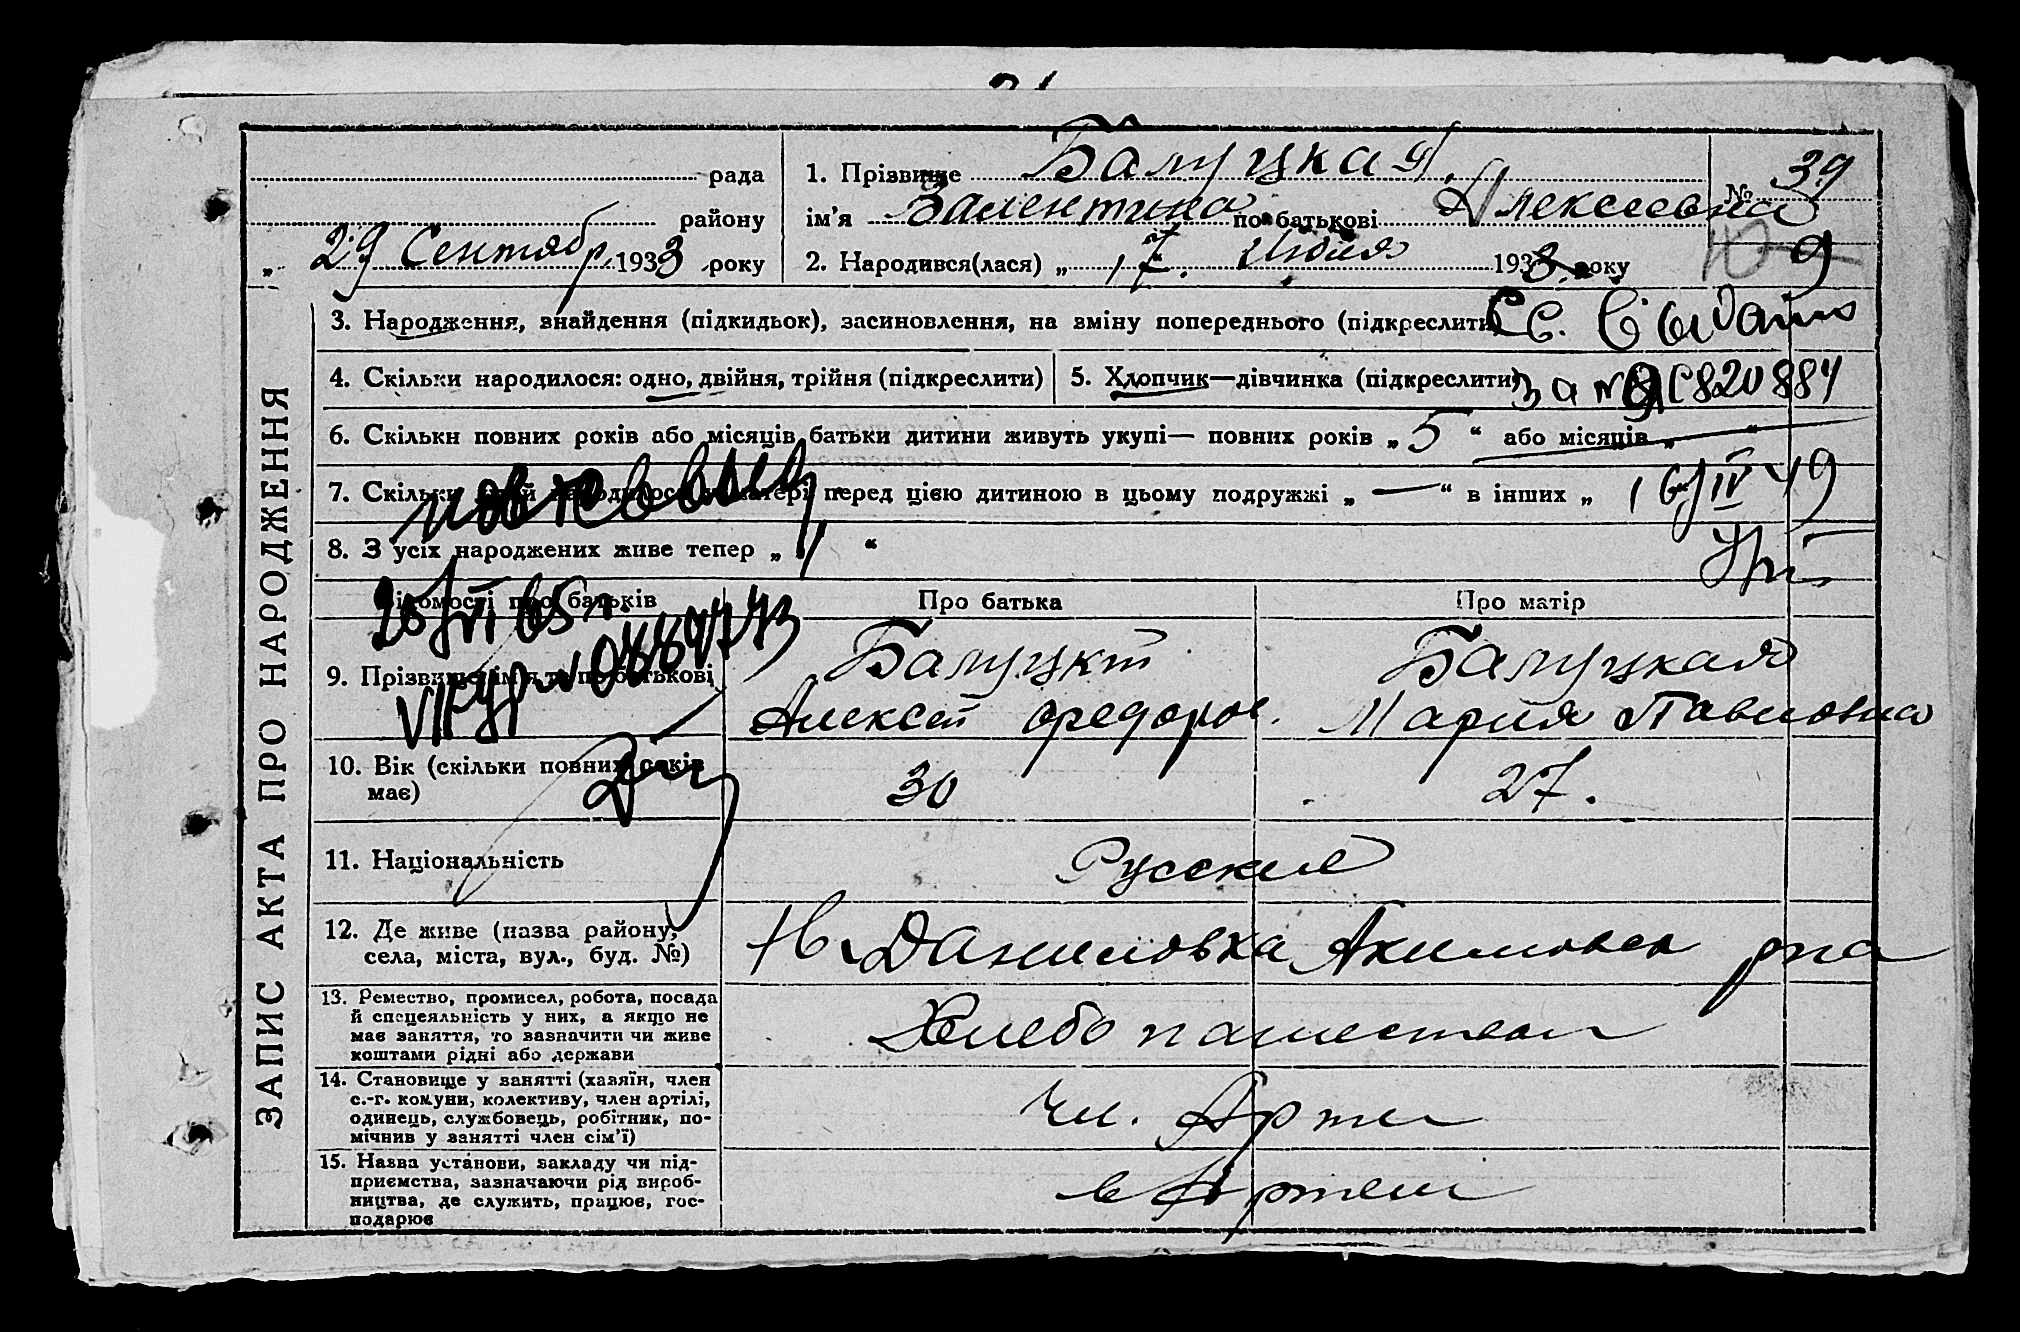 ЗАПИС АКТА ПРО НАРОДЖЕННЯ
рада
району
„ 29 Сентябр. 1933 року
1. Прізвище Балуцкая
ім'я Валентина по батькові Алексеевна
№ 39
9
2. Народився(лася) „ 17. Июля 1933 року
3. Народження, знайдення (підкидьок), засиновлення, на зміну попереднього (підкреслити)
Св.
4. Скільки народилося: одно, двійня, трійня (підкреслити)
5. Хлопчик—дівчинка (підкреслити)
за № 820884
6. Скільки повних років або місяців батьки дитини живуть укупі— повних років „ 5 “ або місяців „ — “
7. Скільки перед цією дитиною в цьому подружжі „ — “ в інших „
16/IV 49
8. З усіх народжених живе тепер „ 1 “
Відомості про батьків
Про батька
Про матір
9. Прізвище, ім'я та по батькові
Балуцкий
Алексей Федоров.
Балуцкая
Мария Павловна
10. Вік (скільки повних років має)
30
27.
11. Національність
Русские
12. Де живе (назва району, села, міста, вул., буд. №)
Н. Даниловка Акимовск р-на
13. Ремество, промисел, робота, посада
й спецеяльність у них, а якщо не
має заняття, то зазначити чи живе
коштами рідні або держави
Хлебопашеством
14. Становище у занятті (хазяїн, член
с.-г. комуни, колективу, член артілі,
одинець, службовець, робітник, по-
мічнив у занятті член сім'ї)
Чл. Арт
15. Назва установи, закладу чи під-
приємства, зазначаючи рід вироб-
ництва, де служить, працює, гос-
подарює
в Артели